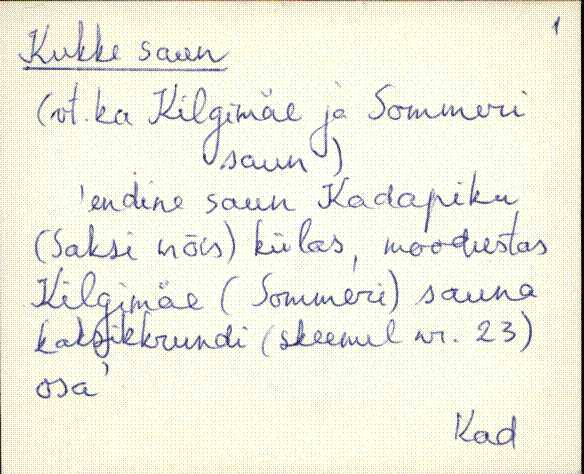 1
Kukke saun
(vt. ka Kilgimäe ja Sommeri
saun)
'endine saun Kadapiku
(Saksi mõis) külas, moodustas
Kilgimäe (Sommeri) sauna
kaksikkrundi (skeemil nr. 23)
osa'
Kad